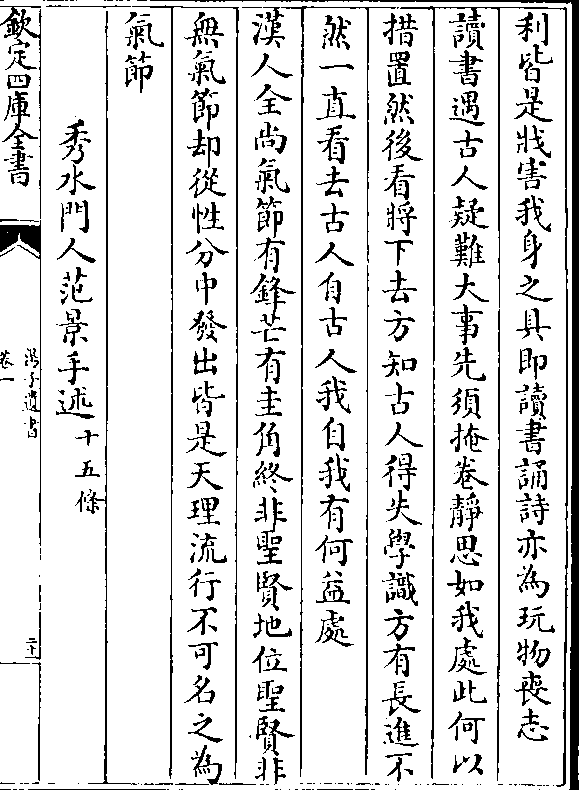 利皆是戕害我身之具即讀書誦詩亦為玩物喪志
讀書遇古人疑難大事先須掩卷靜思如我處此何以
措置然後看將下去方知古人得失學識方有長進不
然一直看去古人自古人我自我有何益處
漢人全尚氣節有鋒芒有圭角終非聖賢地位聖賢非
無氣節却從性分中發出皆是天理流行不可名之為
氣節
秀水門人范景手述十五條
欽定四庫全書
湯子遺書
卷一
二十